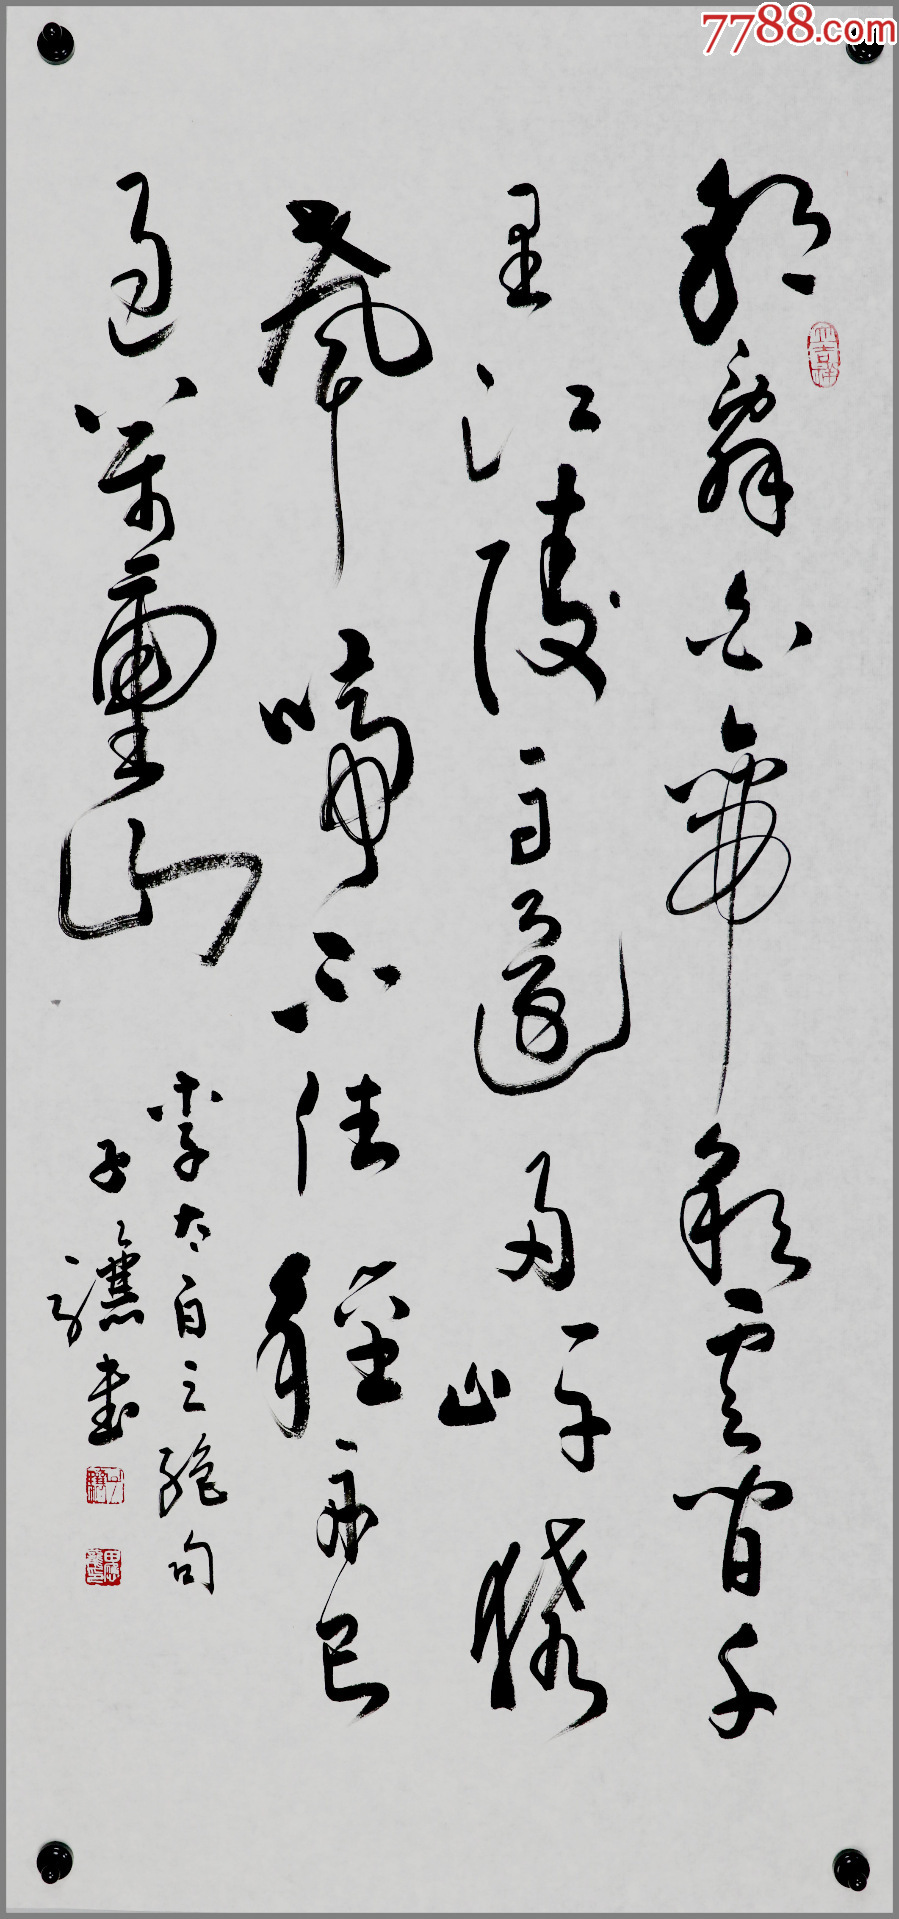 7788.com
朝辭白帝彩雲間千
里江陵一日還兩岸猿
聲啼不住輕舟已
過萬重山
李太白之絕句
子驤書